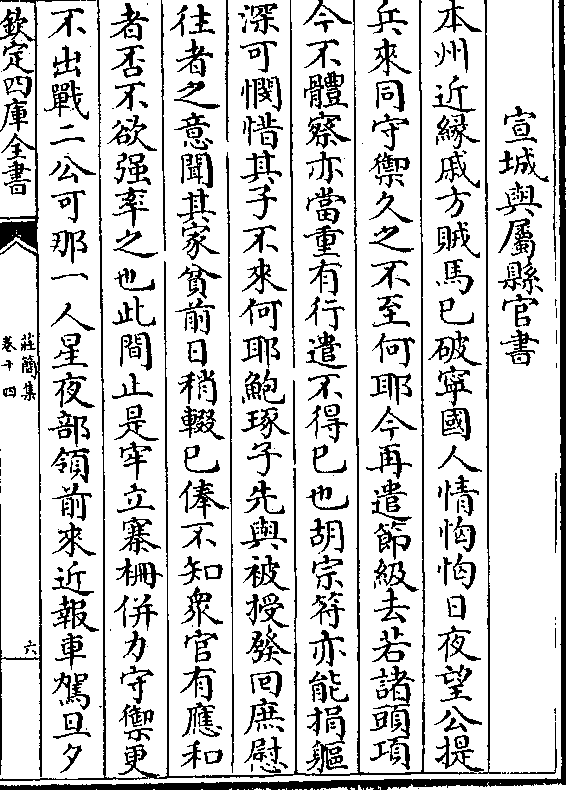 宣城與屬縣官書
本州近縁戚方賊馬已破寧國人情恟恟日夜望公提
兵來同守禦久之不至何耶今再遣節級去若諸頭項
今不體察亦當重有行遣不得已也胡宗符亦能捐軀
深可憫惜其子不來何耶鮑琢子先與被授發回庶慰
往者之意聞其家貧前日稍輟已俸不知衆官有應和
者否不欲强率之也此間止是牢立寨柵併力守禦更
不出戰二公可那一人星夜部領前來近報車駕旦夕
欽定四庫全書
莊簡集
卷十四
六